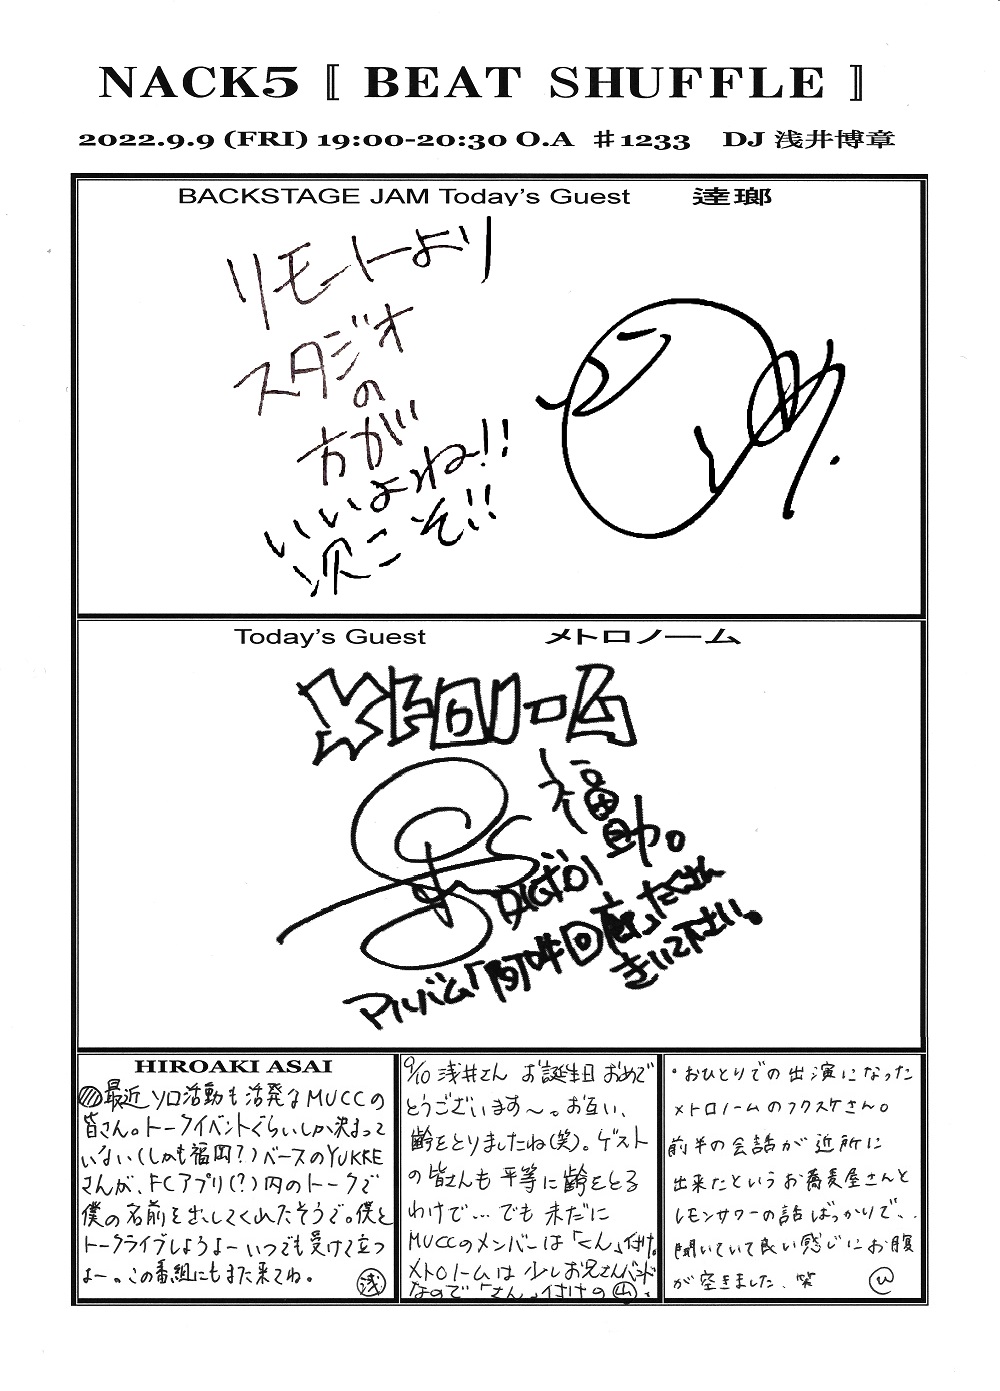 NACK5 〚 BEAT SHUFFLE 〛
2022.9.9 (FRI) 19:00-20:30 O.A ＃1233 DJ 浅井博章
BACKSTAGE JAM Today's Guest 逹瑯
リモートより
スタジオ
の
方が
いいよね!!
次こそ!!
Today's Guest メトロノーム
メトロノーム
福助。
アルバム「阿吽回廊」たくさん
きいて下さい。
HIROAKI ASAI
最近ソロ活動も活発なMUCCの
皆さん。トークイベントぐらいしか決まって
いない(しかも福岡?)ベースのYUKKE
さんが、FCアプリ(?)内のトークで
僕の名前を出してくれたそうで。僕と
トークライブしようよーいつでも受けて立つ
よー。この番組にもまた来てね。 浅
9/10 浅井さん お誕生日おめで
とうございます〜。お互い、
齢をとりましたね(笑)。ゲスト
の皆さんも平等に齢をとる
わけで…でも未だに
MUCCのメンバーは「くん」付け。
メトロノームは少しお兄さんバンド
なので「さん」付けの 山 。
・おひとりでの出演になった
メトロノームのフクスケさん。
前半の会話が近所に
出来たというお蕎麦屋さんと
レモンサワーの話ばっかりで、、
聞いていて良い感じにお腹
が空きました、笑 ひ